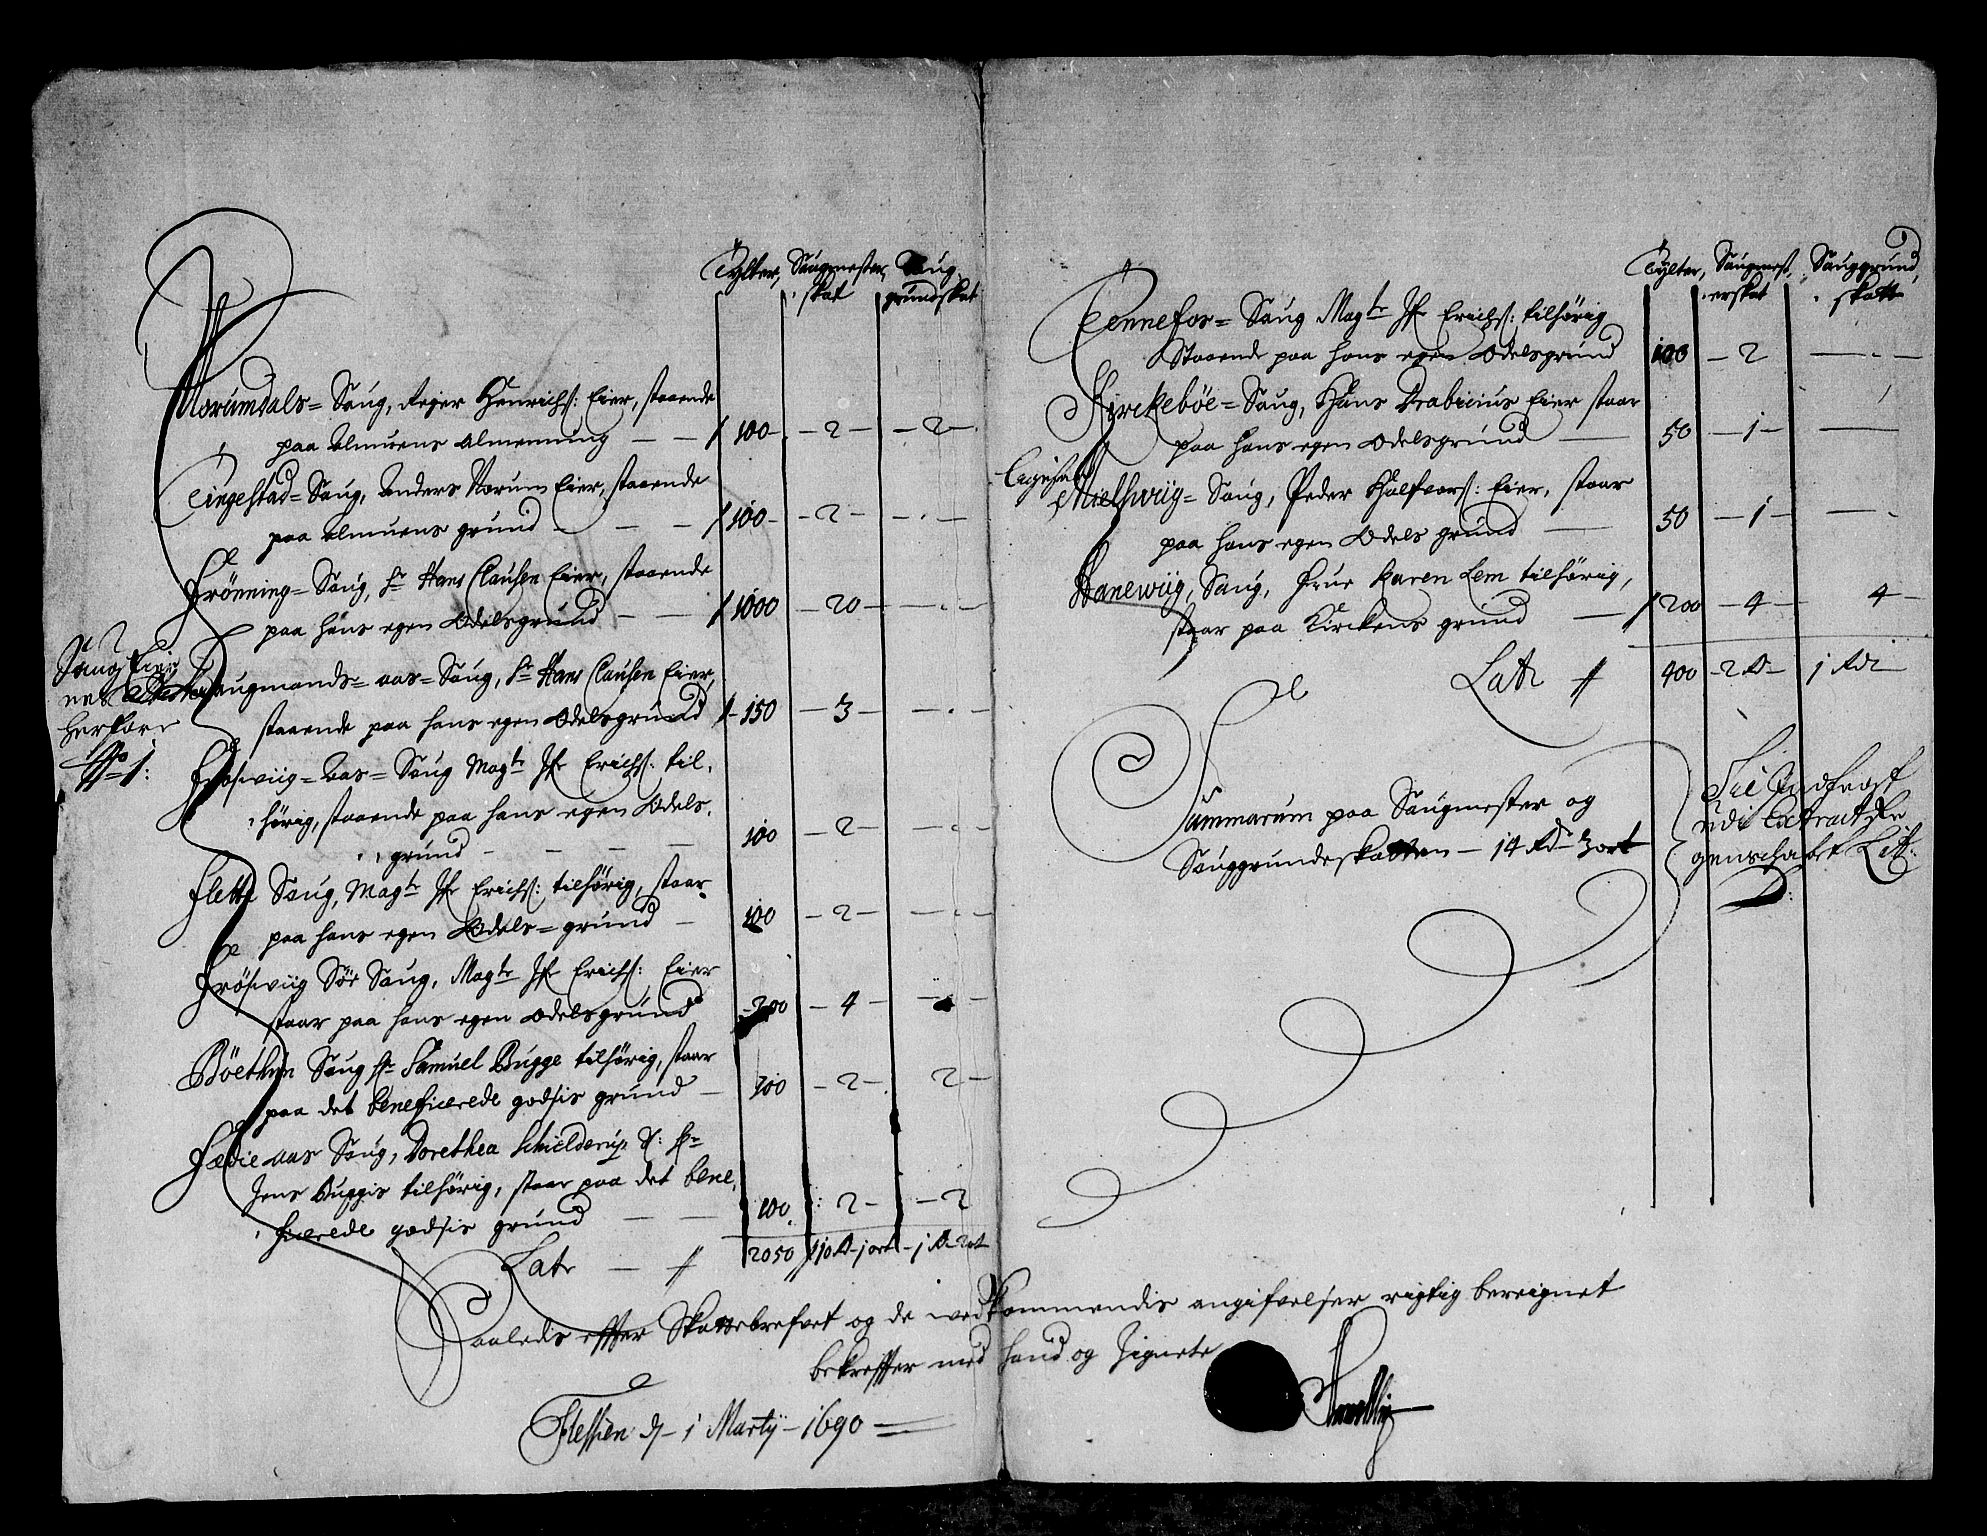 Tylter, Saugmester, Saug
skat grundskat
Morumdals= Saug, Reier Henrichs: Eier, staaende
paa Almuens Almenning — — 100 — 2 — — 2 —
Tingelstad= Saug, Anders Norum Eier, staaende
paa Almuens grund — — — 100 — 2 — — . —
Frönning= Saug, Hr Hans Clausen Eier, staaende
paa hans egen Odelsgrund — — 1000 — 20 — — . —
Saug Eier
herfore
No 1:
Haugmands= aas= Saug, Hr Hans Clausen Eier,
staaende paa hans egen Odelsgrund — 150 — 3 — — . —
Frösviig= Aas= Saug Magtr Erichs: til,
hörig, staaende paa hans egen Odels,
grund — — — — 100 — 2 — — . —
Flette Saug, Magtr Erichs: tilhörig, staar
paa hans egen Odels= grund — 100 — 2 — — . —
Frösviig Sör Saug, Magtr Erichs: Eier
staar paa hans egen Odelsgrund — 200 — 4 —
Böethun Saug Hr Samuel Bugge tilhörig, staar
paa det beneficerede godsis grund — 100 — 2 — 2 —
Fædie aas Saug, Dorethea Schielderup Sl: Hr
Jens Buggis tilhörig, staar paa det bene,
ficerede godsis grund — — 100 : 2 — — 2
Latr — // 2050 10 Rd — 1 ort — 1 Rd — 2 ort
Tylter, Saugmest, Sauggrund,
erskat skatt
Tennefos= Saug Magtr Erichs: tilhörig
Staaende paa hans egen Odelsgrund 100 — 2 — . —
Kirckeböe= Saug, Hans Brabicius Eier staar
paa hans egen Odelsgrund — 50 — 1 — —
Mielhviig= Saug, Peder Halfvors: Eier, staar
paa hans egen Odels grund — 50 — 1 — — .
Hanewiig, Saug, Frue Karen Lem tilhörig,
staar paa Kirckens grund — 200 — 4 — 4 —
Latr // 400 — 2 Rd — 1 Rdr
Summarum paa Saugmester og
Sauggrundeskatten — 14 Rd — 3 ort
Til Indfört
udi Extract
genschabet Litr:
Saaledis effter Skattebrefvet og de wedkommendis angifvelser rigtig bereignet
bekreffter med haand og Zignete
Flessen d — 1 Martij — 1690